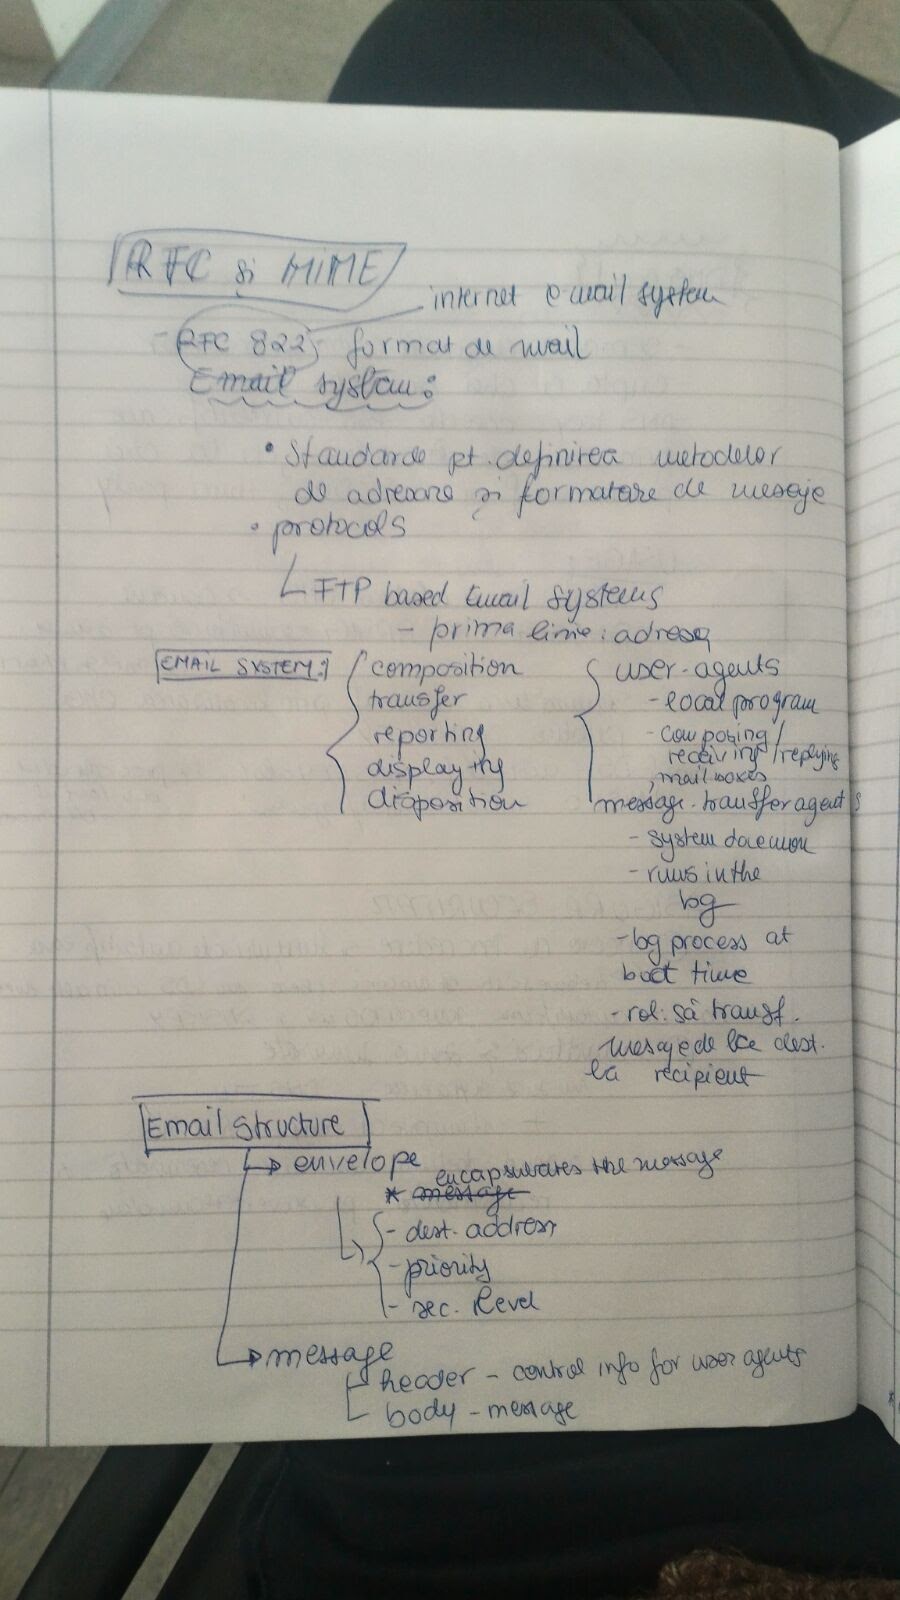 RFC și MIME
internet email system
- RFC 822, format de mail
Email system:
• Standarde pt. definirea metodelor
de adresare și formatare de mesaje
• protocols
FTP based Email systems
- prima linie: adresa
EMAIL SYSTEM:
composition
transfer
reporting
displaying
disposition
user-agents
- local program
- composing/
receiving/replying
, mailboxes
message-transfer agents
- system daemon
- runs in the
bg
- bg process at
boot time
- rol: să transf.
mesaje de la dest.
la recipient
Email Structure
→ envelope
encapsulates the message
* message
- dest. address
- priority
- sec. level
→ message
header - control info for user agents
body - message